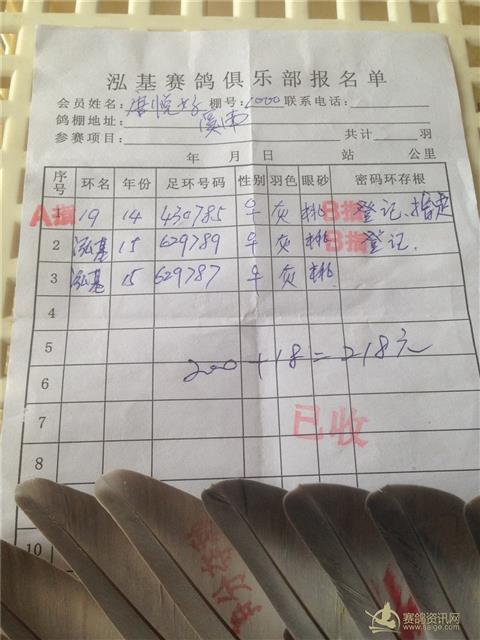 泓基赛鸽俱乐部报名单
会员姓名: 棚号:1000 联系电话:
鸽棚地址: 溪南
参赛项目: 共计 羽
年 月 日 站 公里
序号 环名 年份 足环号码 性别 羽色 眼砂 密码环存根
A指 1 19 14 430785 灰 B指 登记.指定
2 泓基 15 629789 灰 B指 登记.
3 泓基 15 629787 灰
4
5
200+18=218元
6
7 已收
8
10
赛鸽资讯网
www.saige.com